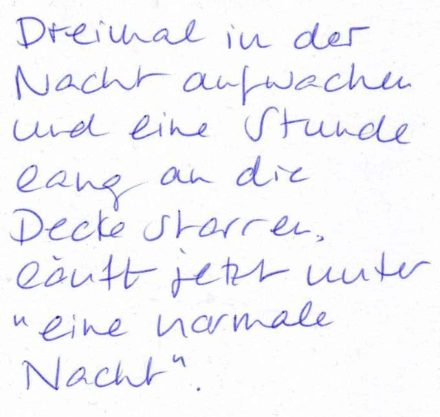 Dreimal in der
Nacht aufwachen
und eine Stunde
lang an die
Decke starren,
läuft jetzt unter
"eine normale
Nacht".